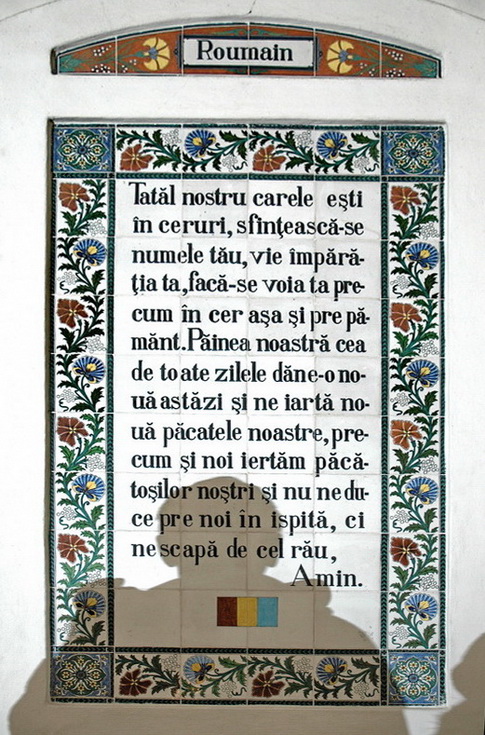 Roumain
Tatăl nostru carele eşti
în ceruri, sfinţească-se
numele tău, vie împără-
ţia ta, facă-se voia ta pre-
cum în cer aşa şi pre pă-
mănt. Păinea noastră cea
de toate zilele dăne-o no-
uă astăzi şi ne iartă no-
uă păcatele noastre, pre-
cum şi noi iertăm păcă-
toşilor noştri şi nu ne du-
ce pre noi în ispită, ci
ne scapă de cel rău,
Amin.